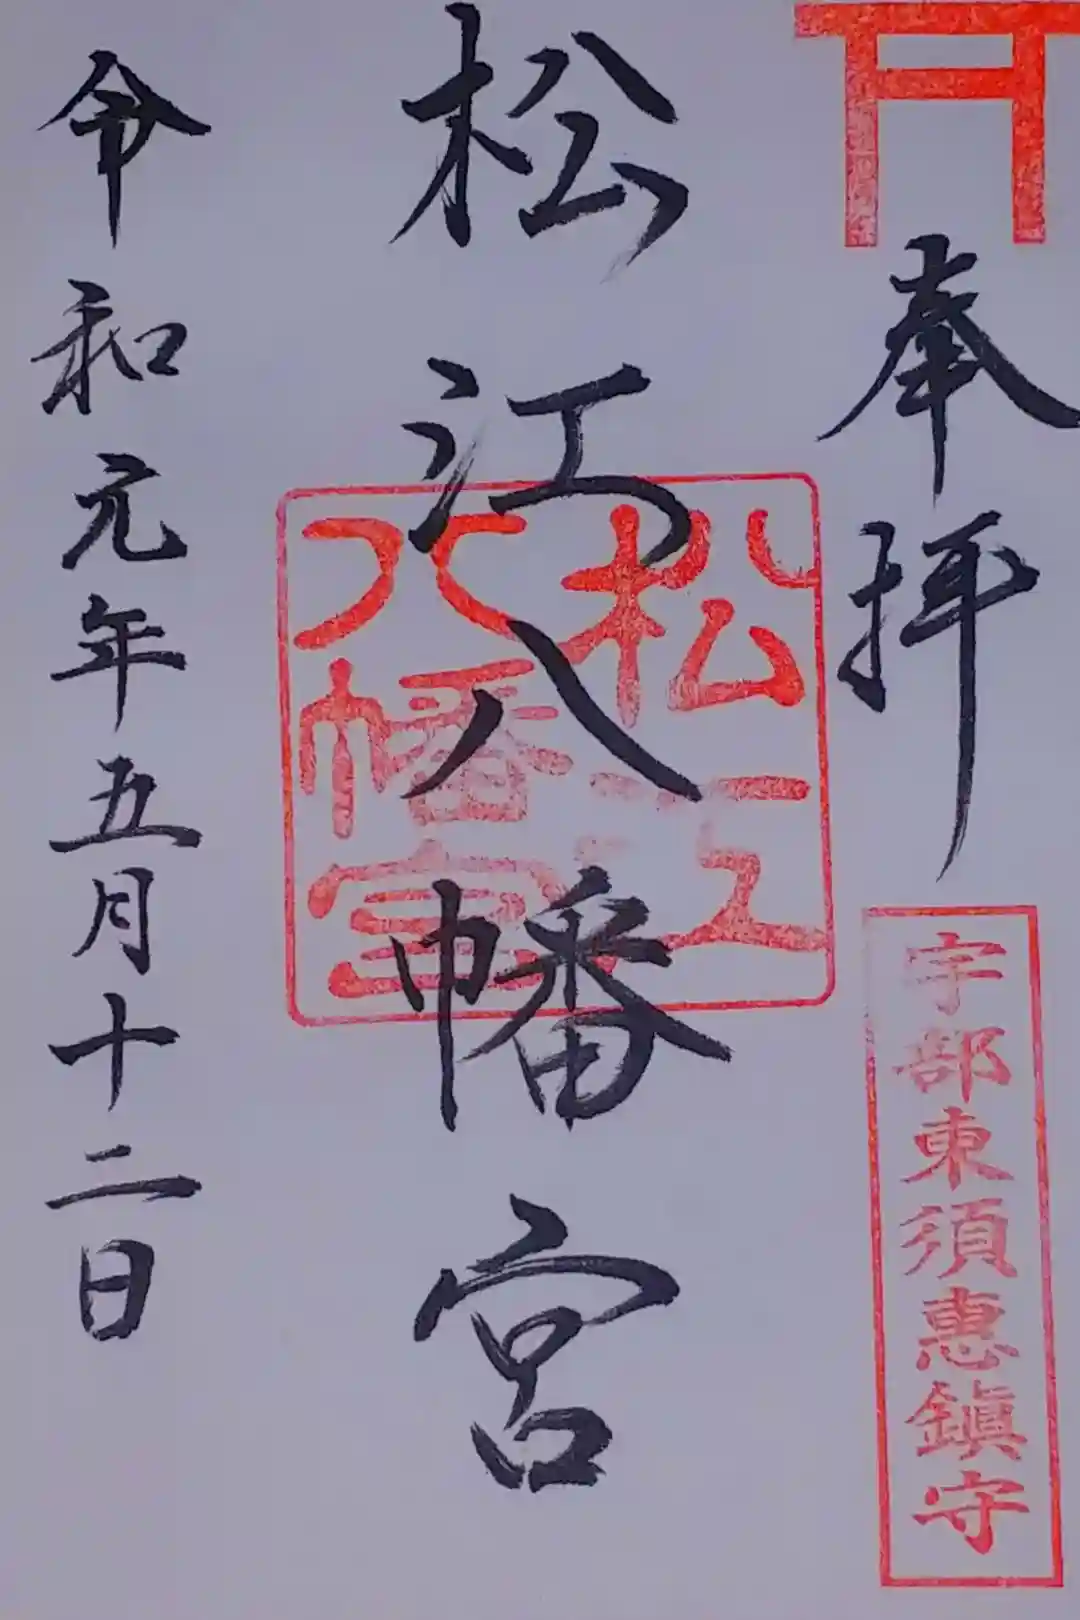 奉拝
宇部東須惠鎮守
松江八幡宮
松江
八幡宮
令和元年五月十二日